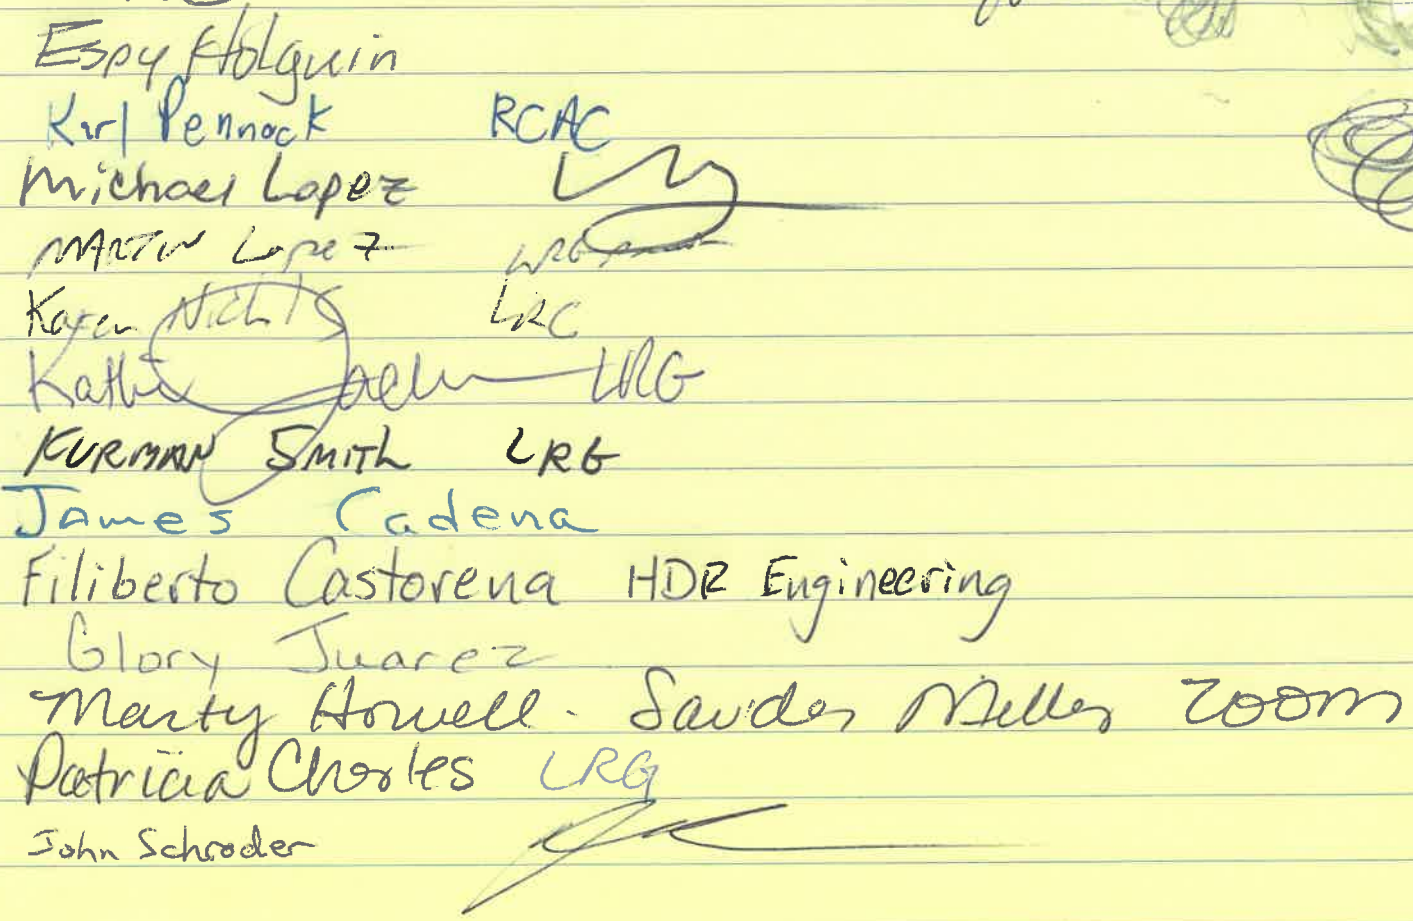 Espy Holguin
Karl Pennock RCAC
Michael Lopez
MARTIN Lopez LRG
Karen Nichols LRG
Kathi LRG
KURMAN SMITH LRG
James Cadena
Filiberto Castorena HDR Engineering
Glory Juarez
Marty Howell - Souder Miller zoom
Patricia Charles LRG
John Schroder